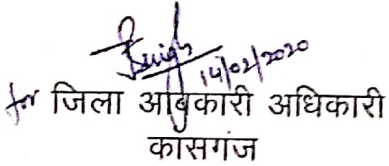 14/02/2020
for जिला आबकारी अधिकारी
कासगंज